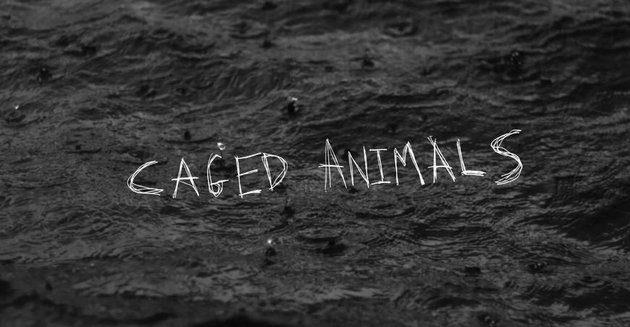 CAGED ANIMALS